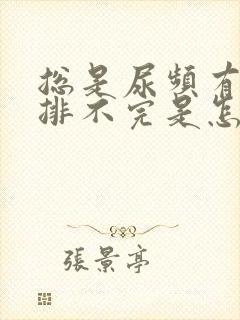 总是尿頻有
排不完是怎
張景亭